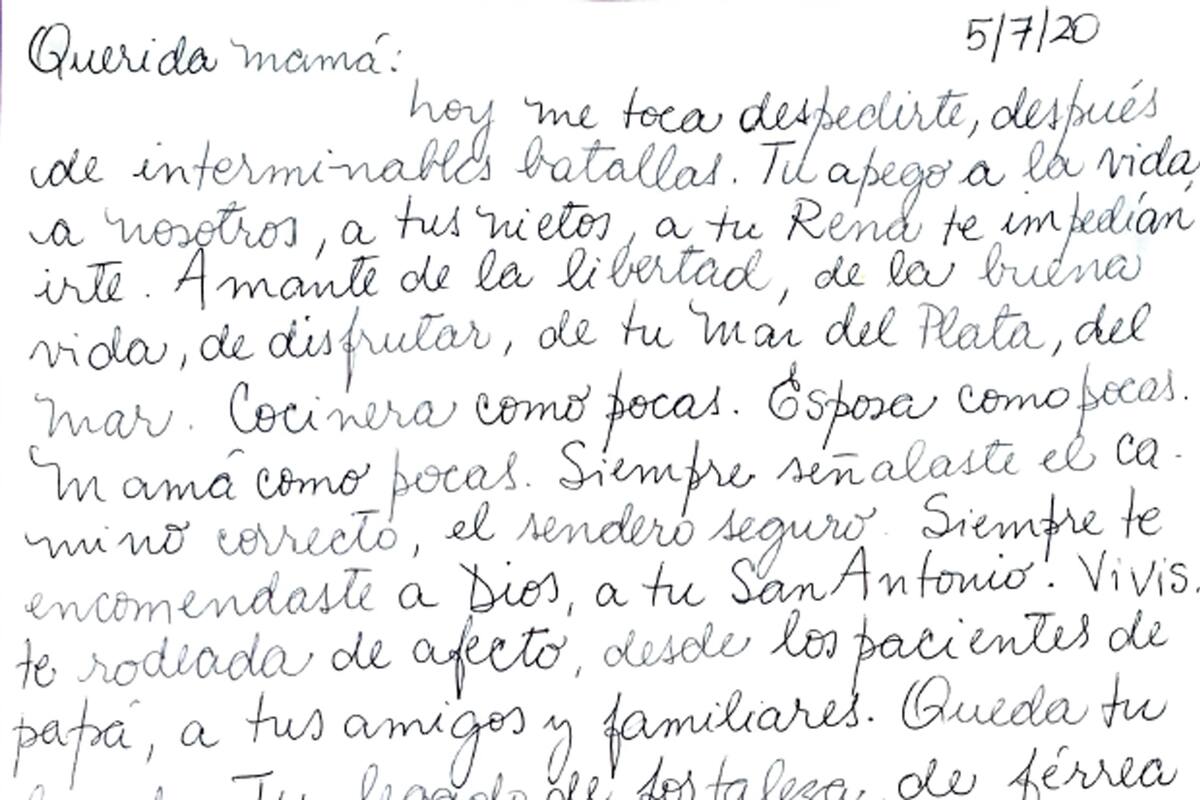 5/7/20
Querida mamá:
hoy me toca despedirte, después
de interminables batallas. Tu apego a la vida,
a nosotros, a tus nietos, a tu Rena te impedían
irte. Amante de la libertad, de la buena
vida, de disfrutar, de tu Mar del Plata, del
mar. Cocinera como pocas. Esposa como pocas.
Mamá como pocas. Siempre señalaste el ca-
mino correcto, el sendero seguro. Siempre te
encomendaste a Dios, a tu San Antonio. Vivis-
te rodeada de afecto, desde los pacientes de
papá, a tus amigos y familiares. Queda tu
Tu legado de fortaleza, de férrea